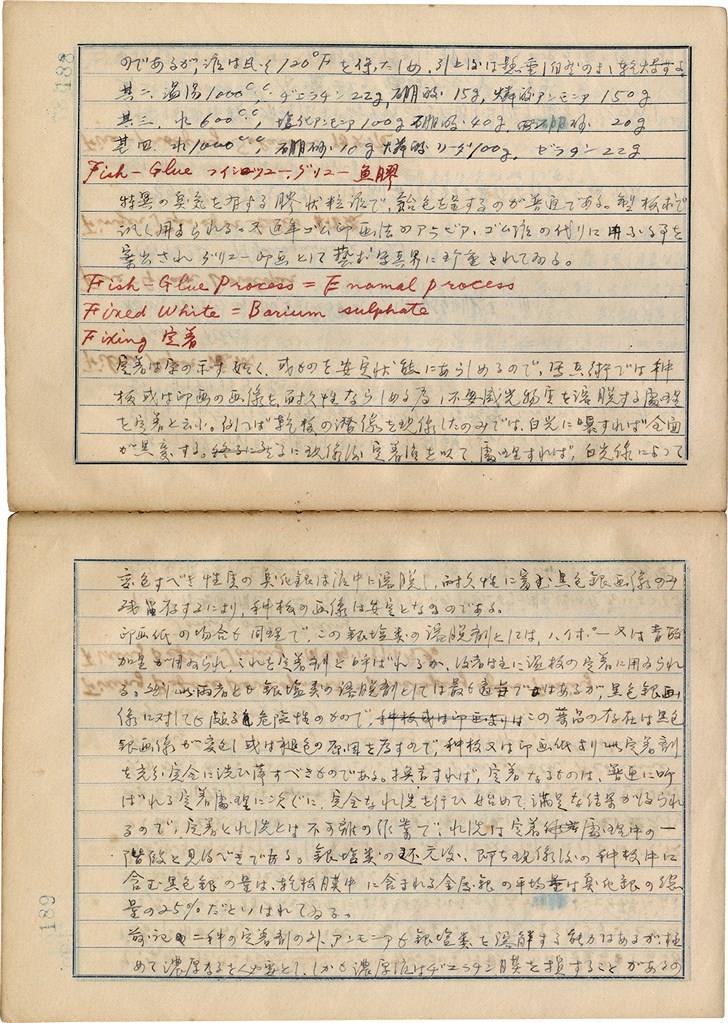 188
のであるが, 液は良く120°Fを保たしめ, 引上後は懸垂自然のまゝ乾燥する
其二. 温湯1000c.c, ゼラチン22g, 硼酸. 15g, 燐酸アンモニア150g
其三. 水600c.c, 塩化アンモニア100g 硼酸. 40g, 硼砂. 20g
其四. 水1000c.c, 硼砂. 10g 燐酸ソーダ100g, ゼラチン22g
Fish-Glue フイシュグリユー. グリユー 魚膠
特異の臭気を有する膠状粒液で, 飴色を呈するのが普通である. 製板術で
汎く用ゐられる. 又近年ゴム印画法のアラビア, ゴム液の代りに用ふる事を
案出されグリユー印画として藝術写真界に珍重されてゐる.
Fish-Glue Process = Enamal process
Fixed White = Barium sulphate
Fixing 定着
定着は字の示す如く, 或ものを安定状態にあらしめるので, 写真術では種
板或は印画の画像を耐久性ならしめる為, 不要感光物質を溶脱する處理
を定着と云ふ. 例へば乾板の潜像を現像したのみでは, 白光に曝すれば全面
が黒変する. 然るに現像後定着液を以て處理すれば, 白光線によつて
変色すべき性質の臭化銀は液中に溶脱し, 耐久性に富む黒色銀画像のみ
残留存するにより, 種板の画像は安定となるのである.
印画紙の場合も同理で, この銀塩類の溶脱剤としては, ハイポー又は青酸
加里が用ゐられ, これを定着剤と呼ばれるが, 後者は主に湿板の定着に用ゐられ
る. 然し此両者とも銀塩類の溶脱剤としては最も適当ではあるが, 黒色銀画
像に対しても頗る危険性のもので, 種板或は印画よりはこの薬品の存在は黒色
銀画像が変色し或は褪色の原因を為すので, 種板又は印画紙より此定着剤
を充分完全に洗ひ落すべきものである. 換言すれば, 定着なるものは, 普通に呼
ばれる定着處理に次でに, 完全な水洗を行ひ始めて, 満足な結果が得られ
るので, 定着と水洗とは不可離の作業で, 水洗は定着處理中の一
階段と見るべきである. 銀塩類の還元後, 即ち現像後の種板中に
含む黒色銀の量は, 乾板膜中に含まれる金属銀の平均量は臭化銀の総
量の25%だといはれてゐる.
前記の二種の定着剤の外, アンモニアも銀塩類を溶解する能力はあるが, 極
めて濃厚なるを必要とし, しかも濃厚液はゼラチン膜を損することがあるの
189